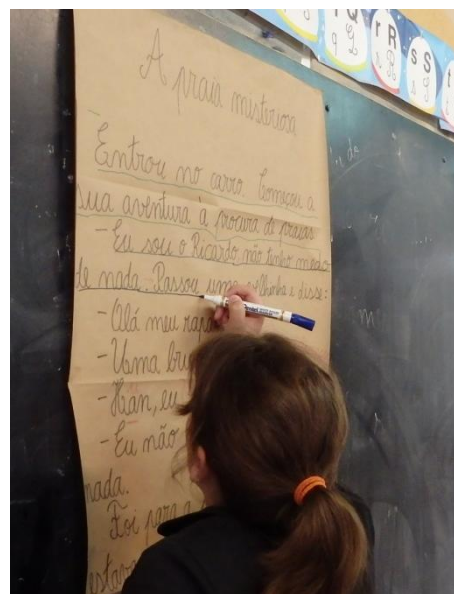 Q
q
r R
s S
t
A praia misteriosa
Entrou no carro. Começou a
sua aventura à procura de praias
- Eu sou o Ricardo, não tenho medo
de nada. Passou uma velhinha e disse:
- Olá meu
- Uma
- Han, eu
- Eu, não
nada.
Foi para a
estava